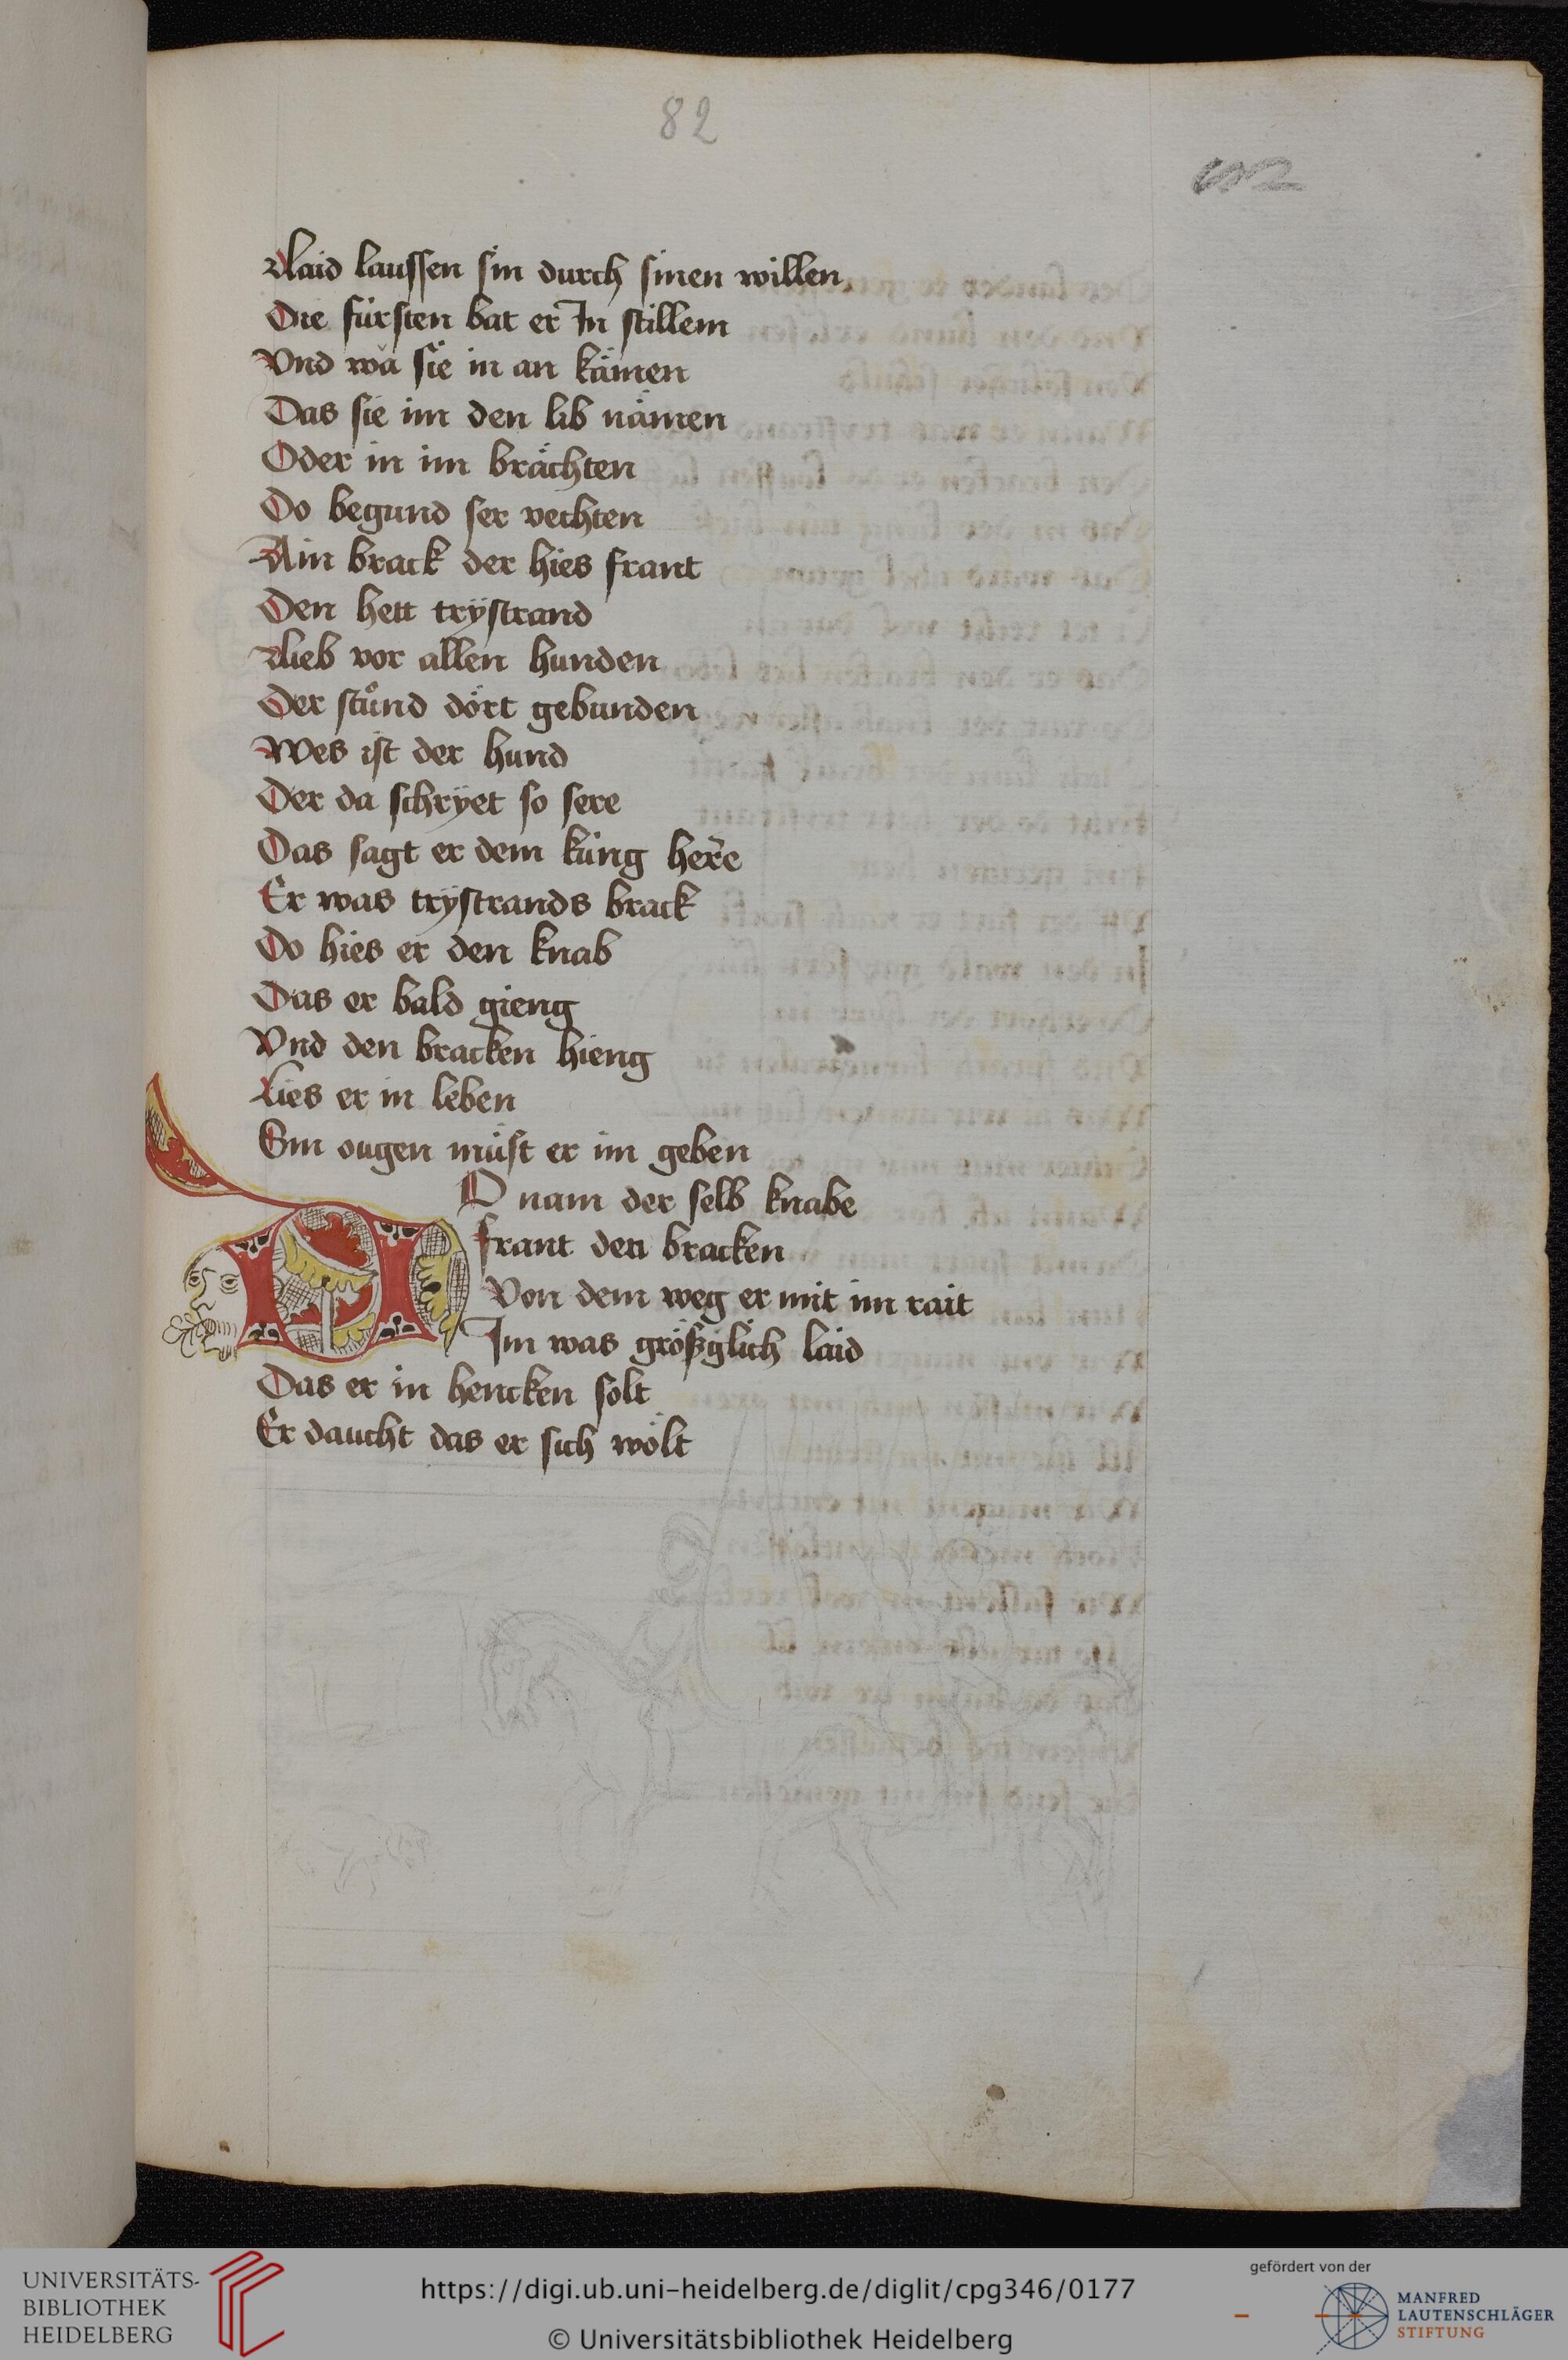 82
Laid laussen sin durch sinen willen
Die fürsten bat er In stillem
Vnd wä sie in an kämen
Das sie im den lib nämen
Oder in im brächten
Do begund ser vechten
Ain brack der hies frant
Den hett trÿstrand
Lieb vor allen hunden
Der stůnd dört gebunden
Wes ist der hund
Der da schrÿet so sere
Das sagt er dem küng here
Er was trÿstrands brack
Do hies er den knab
Das er bald gieng
Vnd den bracken hieng
Lies er in leben
Sin ougen müst er im geben
DO nam der selb knabe
frant den bracken
Von dem weg er mit im rait
Im was größglich laid
Das er in hencken solt
Er daucht das er sich wölt
UNIVERSITÄTS-
BIBLIOTHEK
HEIDELBERG
https://digi.ub.uni-heidelberg.de/diglit/cpg346/0177
© Universitätsbibliothek Heidelberg
gefördert von der
MANFRED
LAUTENSCHLÄGER
STIFTUNG